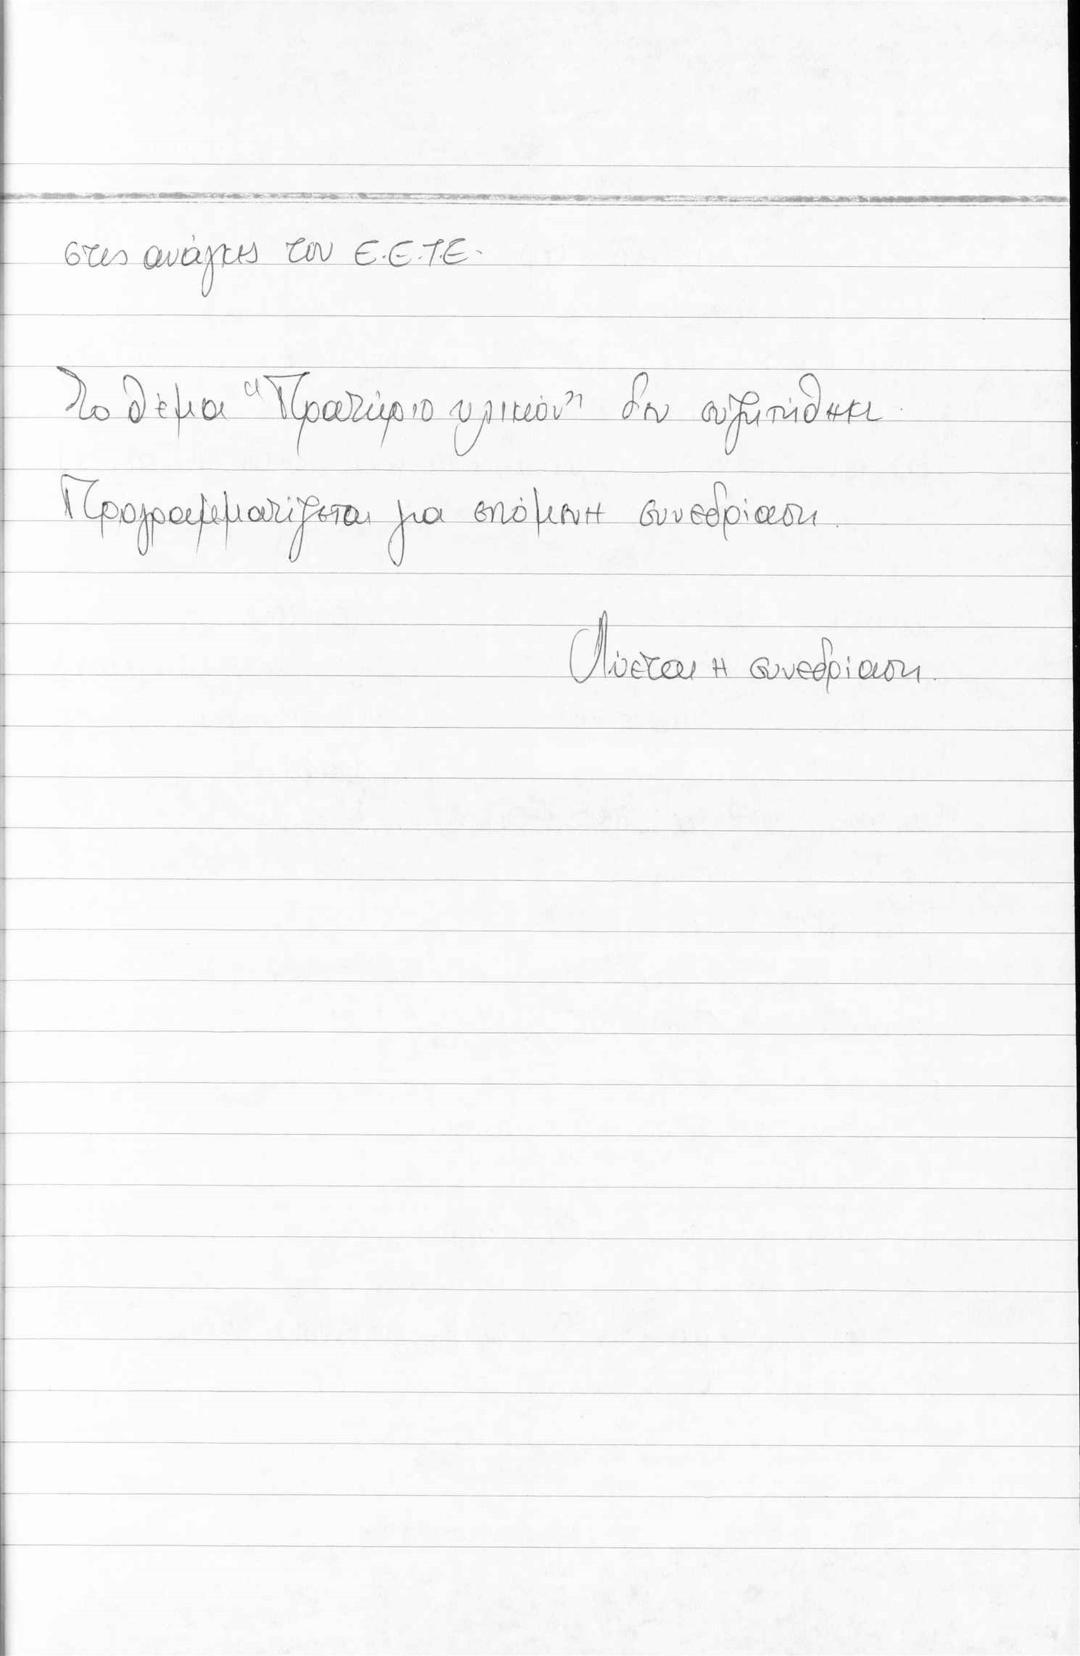 στις ανάγκες του Ε.Ε.Τ.Ε.
Το θέμα "Πρατήριο υλικών" δεν συζητήθηκε.
Προγραμματίζεται για επόμενη συνεδρίαση.
Λύεται η συνεδρίαση.